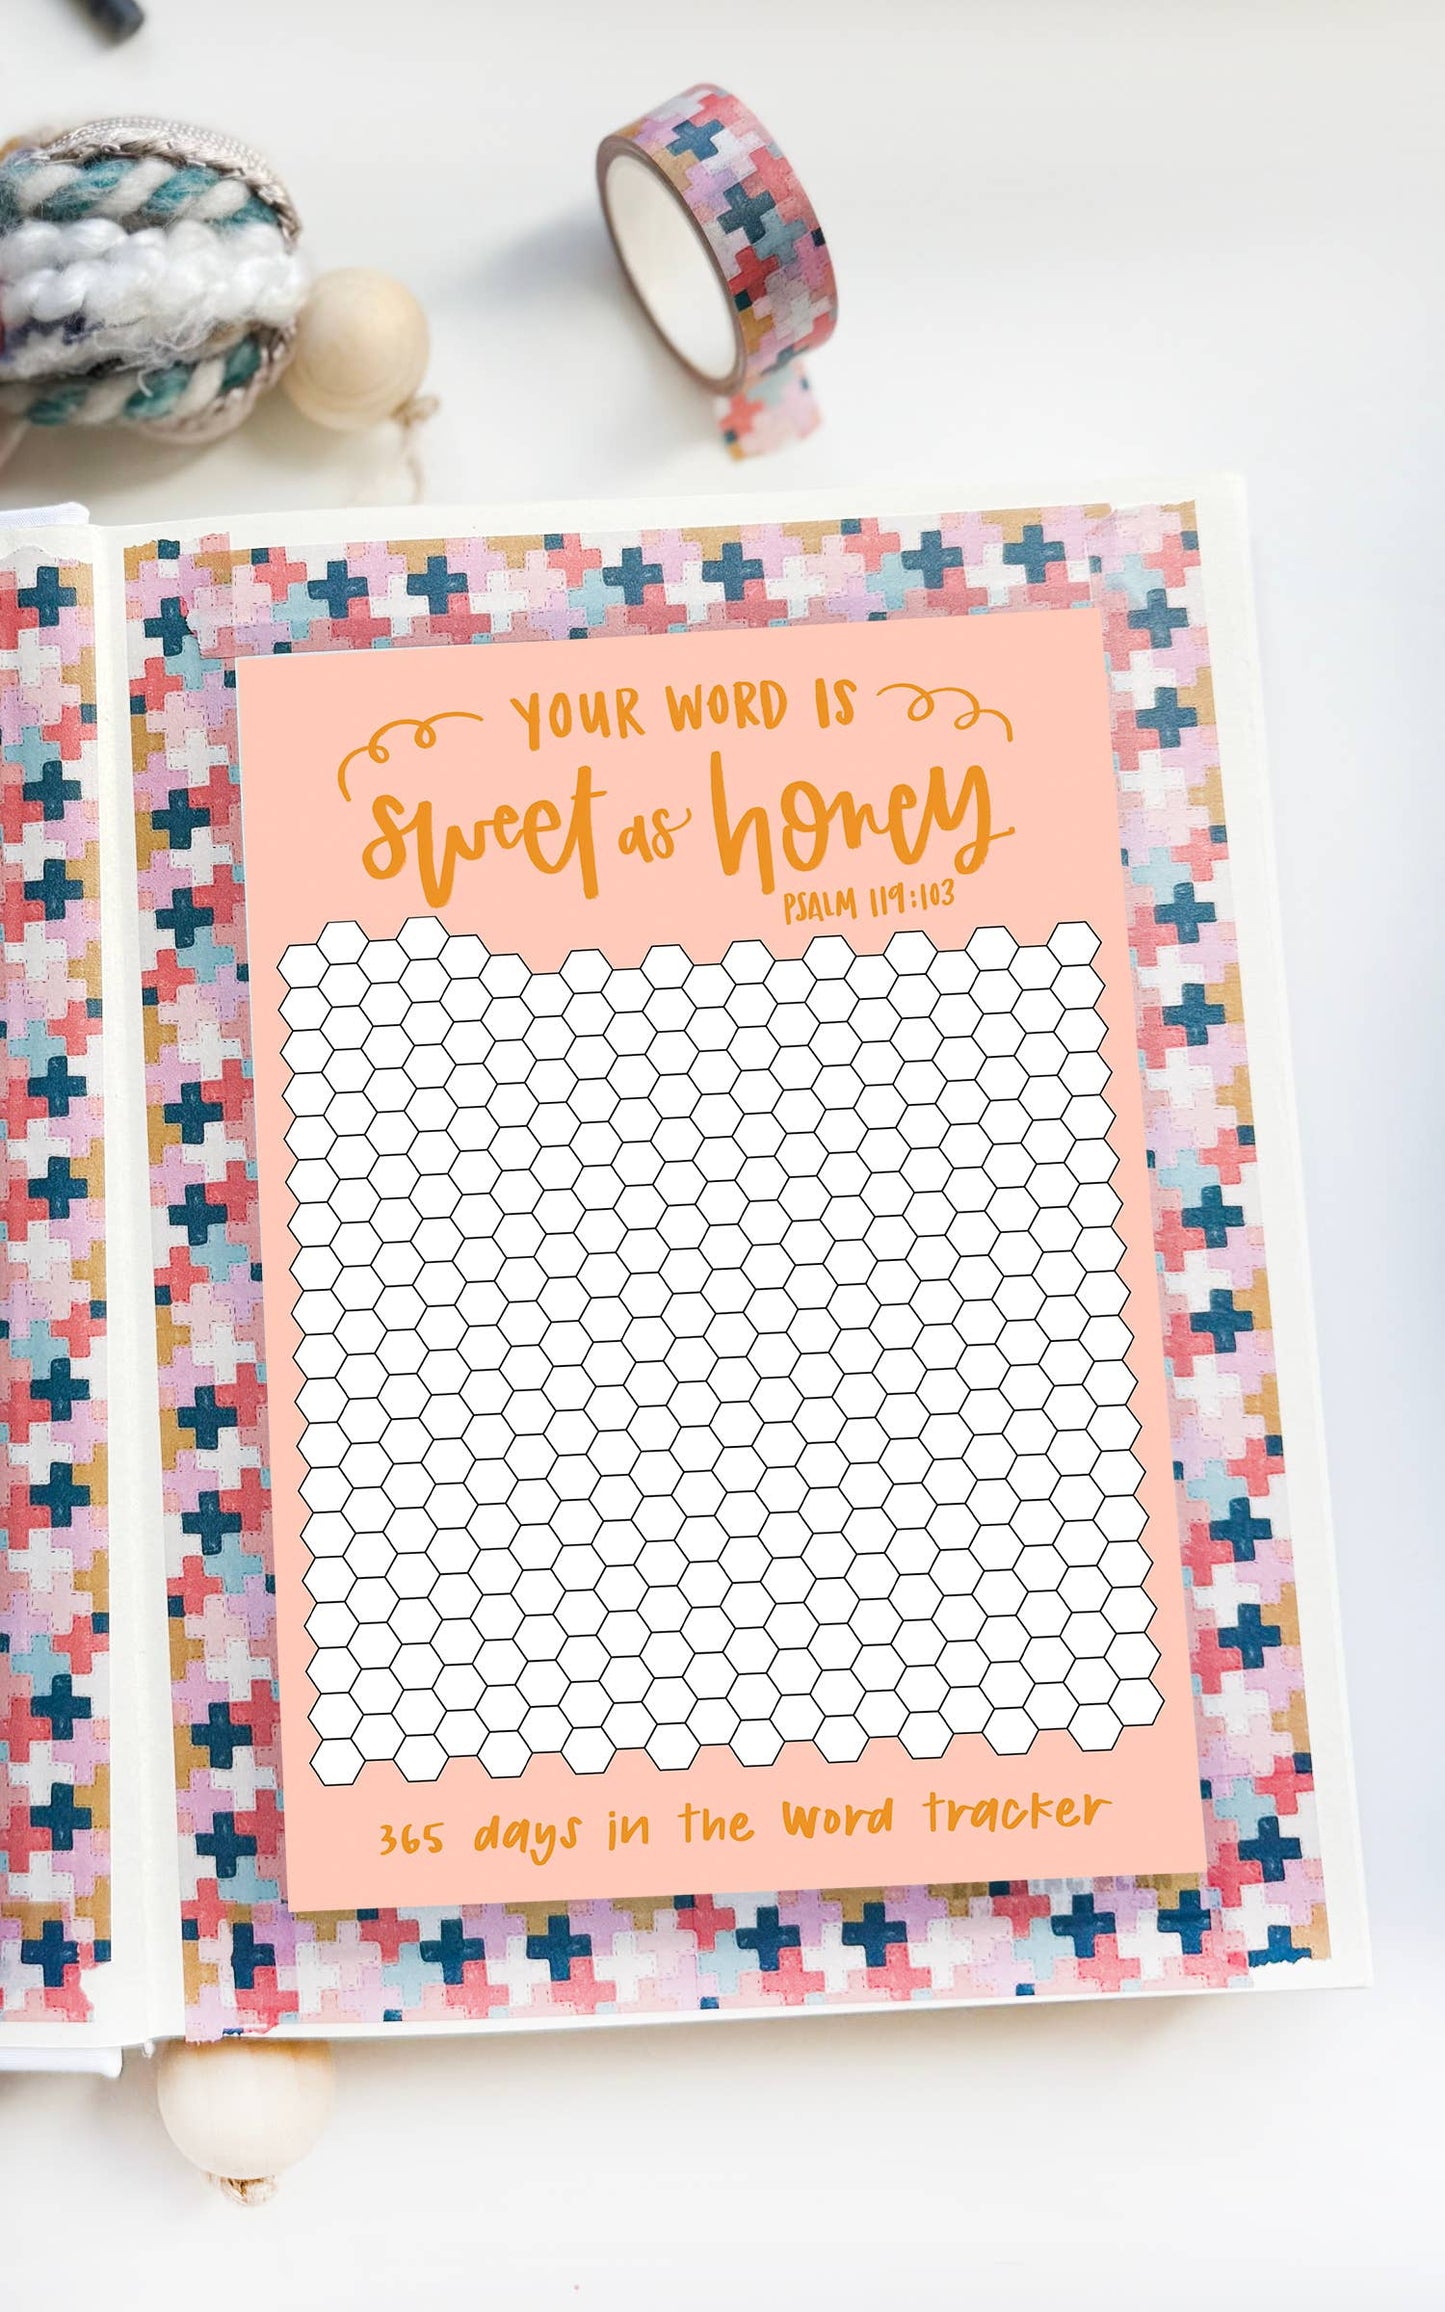 YOUR WORD IS
sweet as honey
PSALM 119:103
365 days in the word tracker